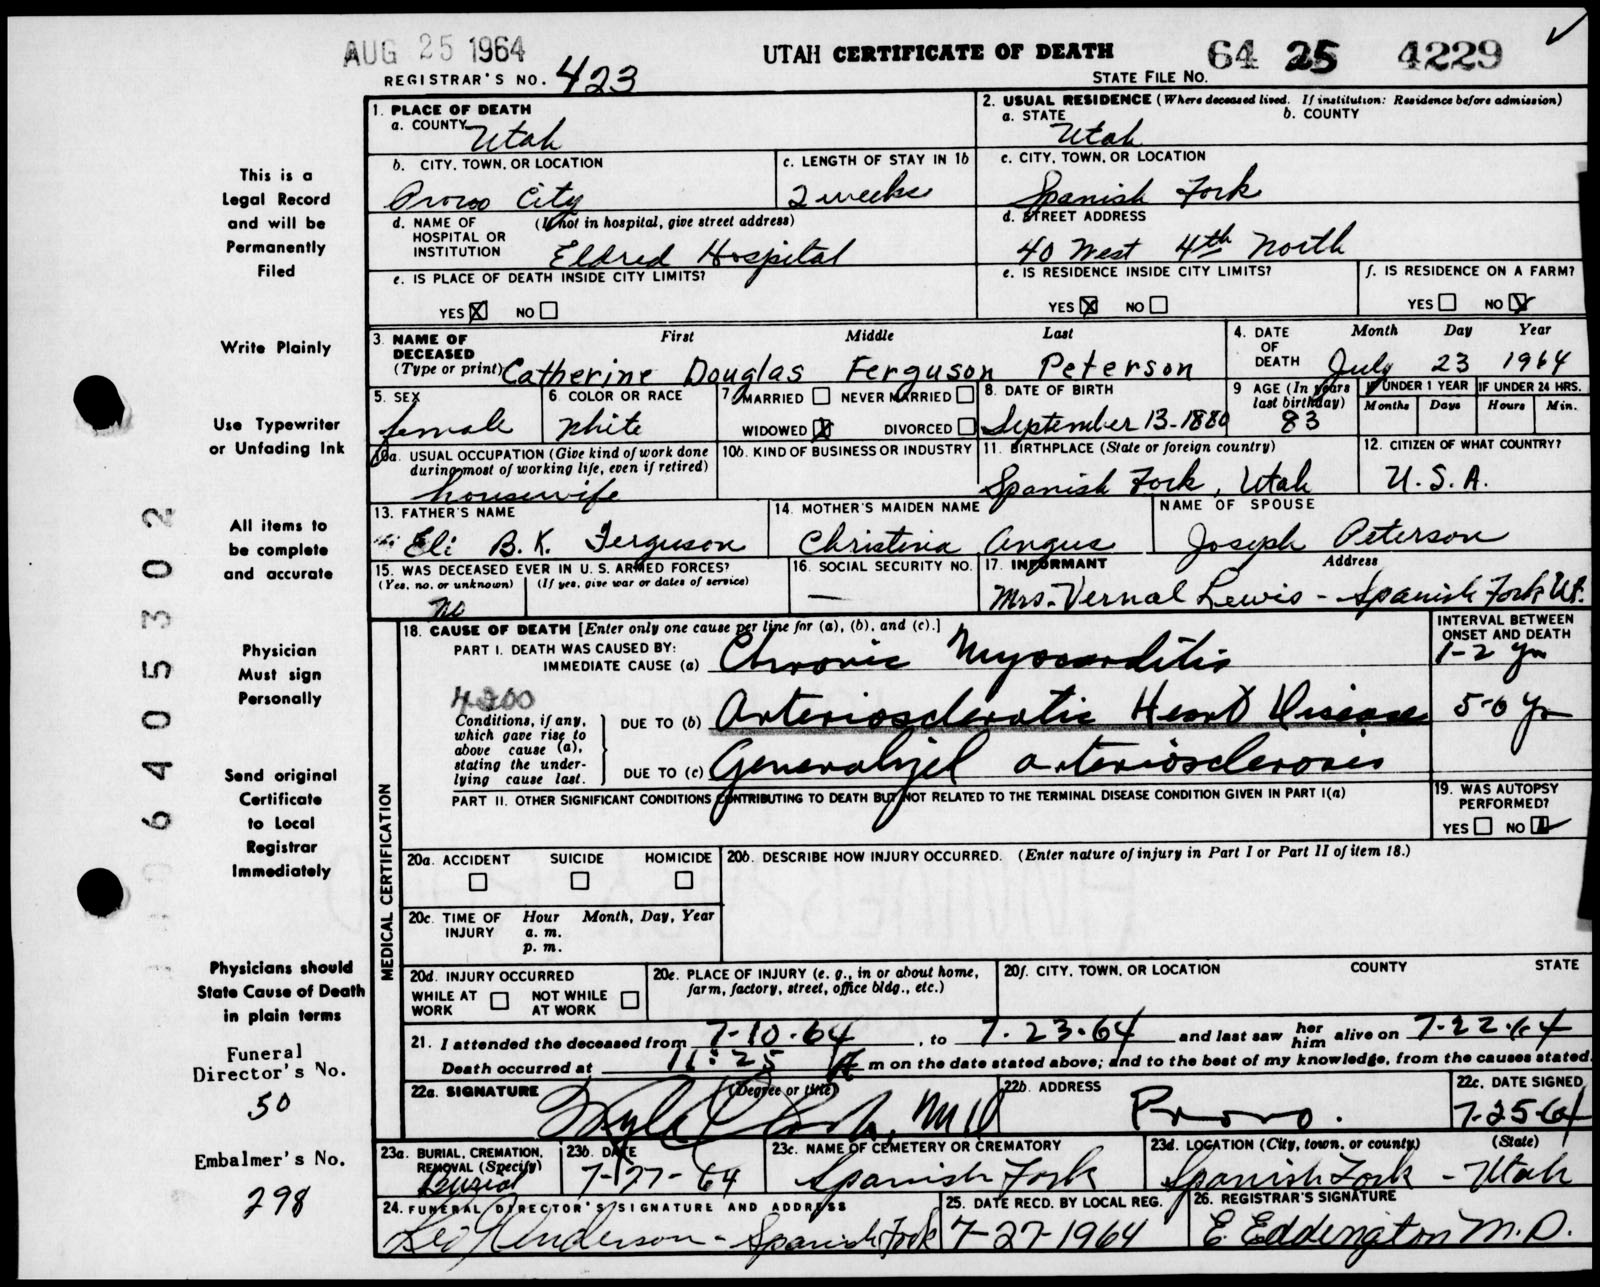 AUG 25 1964
UTAH CERTIFICATE OF DEATH
64 25 4229
REGISTRAR'S NO. 423
STATE FILE NO.
1. PLACE OF DEATH
a. COUNTY Utah
2. USUAL RESIDENCE (Where deceased lived. If institution: Residence before admission)
a. STATE Utah
b. COUNTY
b. CITY, TOWN, OR LOCATION
Provo City
c. LENGTH OF STAY IN 1b
2 weeks
c. CITY, TOWN, OR LOCATION
Spanish Fork
d. NAME OF HOSPITAL OR INSTITUTION (If not in hospital, give street address)
Eldred Hospital
d. STREET ADDRESS
40 West 4th North
e. IS PLACE OF DEATH INSIDE CITY LIMITS?
YES X NO
e. IS RESIDENCE INSIDE CITY LIMITS?
YES X NO
f. IS RESIDENCE ON A FARM?
YES NO
3. NAME OF DECEASED (Type or print)
First Middle Last
Catherine Douglas Ferguson Peterson
4. DATE OF DEATH
Month Day Year
July 23 1964
5. SEX
female
6. COLOR OR RACE
White
7. MARRIED NEVER MARRIED
WIDOWED X DIVORCED
8. DATE OF BIRTH
September 13-1880
9 AGE (In years last birthday)
83
IF UNDER 1 YEAR
Months Days
IF UNDER 24 HRS.
Hours Min.
10a. USUAL OCCUPATION (Give kind of work done during most of working life, even if retired)
housewife
10b. KIND OF BUSINESS OR INDUSTRY
11. BIRTHPLACE (State or foreign country)
Spanish Fork, Utah
12. CITIZEN OF WHAT COUNTRY?
U.S.A.
13. FATHER'S NAME
Eli B.K. Ferguson
14. MOTHER'S MAIDEN NAME
Christina Angus
NAME OF SPOUSE
Joseph Peterson
15. WAS DECEASED EVER IN U.S. ARMED FORCES?
(Yes, no, or unknown) (If yes, give war or dates of service)
No
16. SOCIAL SECURITY NO.
—
17. INFORMANT Address
Mrs. Vernal Lewis - Spanish Fork, Ut.
18. CAUSE OF DEATH [Enter only one cause per line for (a), (b), and (c).]
INTERVAL BETWEEN ONSET AND DEATH
PART I. DEATH WAS CAUSED BY:
IMMEDIATE CAUSE (a) Chronic Myocarditis
1-2 yr
4200
Conditions, if any, which gave rise to above cause (a), stating the underlying cause last.
DUE TO (b) Arteriosclerotic Heart Disease
DUE TO (c) Generalized arteriosclerosis
PART II. OTHER SIGNIFICANT CONDITIONS CONTRIBUTING TO DEATH BUT NOT RELATED TO THE TERMINAL DISEASE CONDITION GIVEN IN PART I(a)
19. WAS AUTOPSY PERFORMED?
YES NO
MEDICAL CERTIFICATION
20a. ACCIDENT SUICIDE HOMICIDE
20b. DESCRIBE HOW INJURY OCCURRED. (Enter nature of injury in Part I or Part II of item 18.)
20c. TIME OF INJURY
Hour Month, Day, Year
a. m.
p. m.
20d. INJURY OCCURRED
WHILE AT WORK NOT WHILE AT WORK
20e. PLACE OF INJURY (e. g., in or about home, farm, factory, street, office bldg., etc.)
20f. CITY, TOWN, OR LOCATION COUNTY STATE
21. I attended the deceased from 7-10-64, to 7-23-64 and last saw her him alive on 7-22-64
Death occurred at 11:25 A m on the date stated above; and to the best of my knowledge, from the causes stated.
22a. SIGNATURE (Degree or title)
M.D.
22b. ADDRESS
Provo.
22c. DATE SIGNED
7-25-64
23a. BURIAL, CREMATION, REMOVAL (Specify)
Burial
23b. DATE
7-27-64
23c. NAME OF CEMETERY OR CREMATORY
Spanish Fork
23d. LOCATION (City, town, or county) (State)
Spanish Fork - Utah
24. FUNERAL DIRECTOR'S SIGNATURE AND ADDRESS
Anderson - Spanish Fork
25. DATE RECD. BY LOCAL REG.
7-27-1964
26. REGISTRAR'S SIGNATURE
E. Eddington M.D.
This is a
Legal Record
and will be
Permanently
Filed
Write Plainly
Use Typewriter
or Unfading Ink
All items to
be complete
and accurate
Physician
Must sign
Personally
Send original
Certificate
to Local
Registrar
Immediately
Physicians should
State Cause of Death
in plain terms
Funeral
Director's No.
50
Embalmer's No.
298
6405302